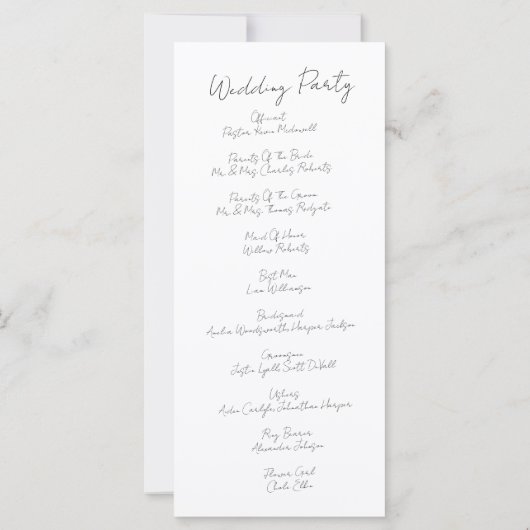 Wedding Party
Officiant
Pastor Kevin McDowell
Parents Of the Bride
Mr. & Mrs. Charles Roberts
Parents Of the Groom
Mr. & Mrs. Thomas Redgate
Maid Of Honor
Willow Roberts
Best Man
Liam Williamson
Bridesmaid
Amelia Woodsworth, Harper Jackson
Groomsmen
Justin Lyall, Scott DuVall
Ushers
Aiden Carlyle, Johnathan Harper
Ring Bearer
Alexander Johnson
Flower Girl
Chole